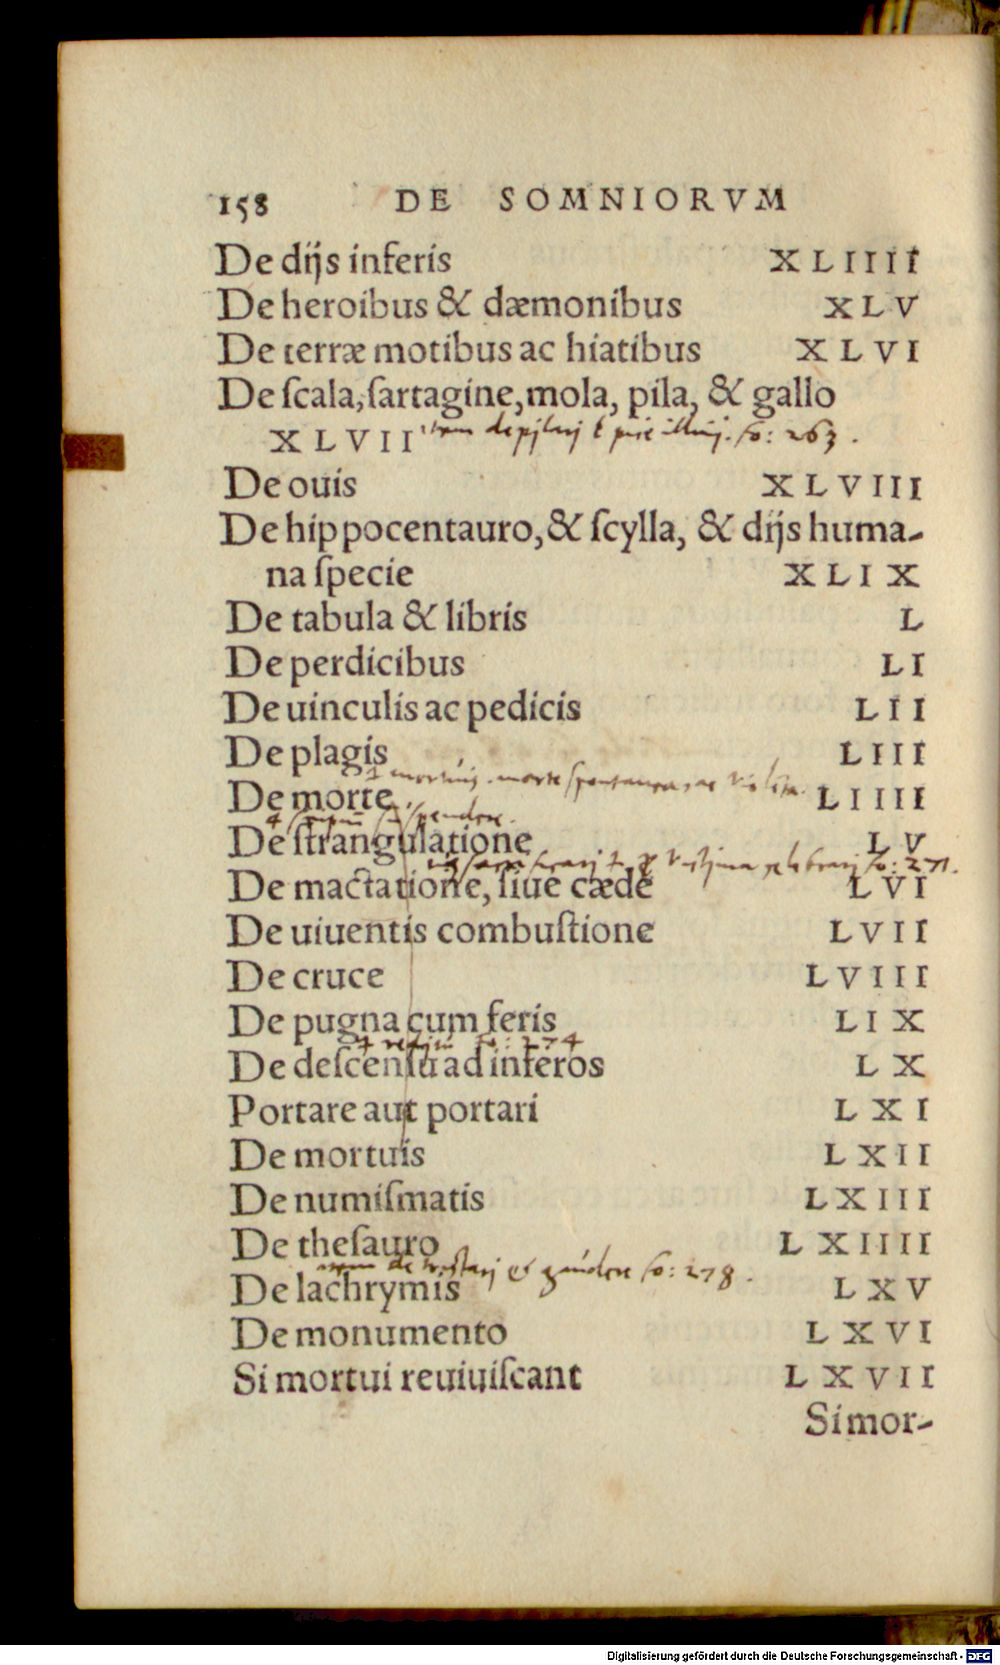 158 DE SOMNIORVM
De dijs inferis XLIIII
De heroibus & dæmonibus XLV
De terræ motibus ac hiatibus XLVI
De ſcala, ſartagine, mola, pila, & gallo
XLVII fo: 263.
De ouis XLVIII
De hippocentauro, & ſcylla, & dijs huma-
na ſpecie XLIX
De tabula & libris L
De perdicibus LI
De uinculis ac pedicis LII
De plagis LIII
morte spontanea, ac violēta.
De morte. LIIII
suspendere.
De ſtrangulatione LV
fo: 271.
De mactatione, ſiue cæde LVI
De uiuentis combuſtione LVII
De cruce LVIII
De pugna cum feris LIX
fo: 274
De deſcenſu ad inferos LX
Portare aut portari LXI
De mortuis LXII
De numiſmatis LXIII
De theſauro LXIIII
fo: 278.
De lachrymis LXV
De monumento LXVI
Si mortui reuiuiſcant LXVII
Si mor-
Digitalisierung gefördert durch die Deutsche Forschungsgemeinschaft - DFG